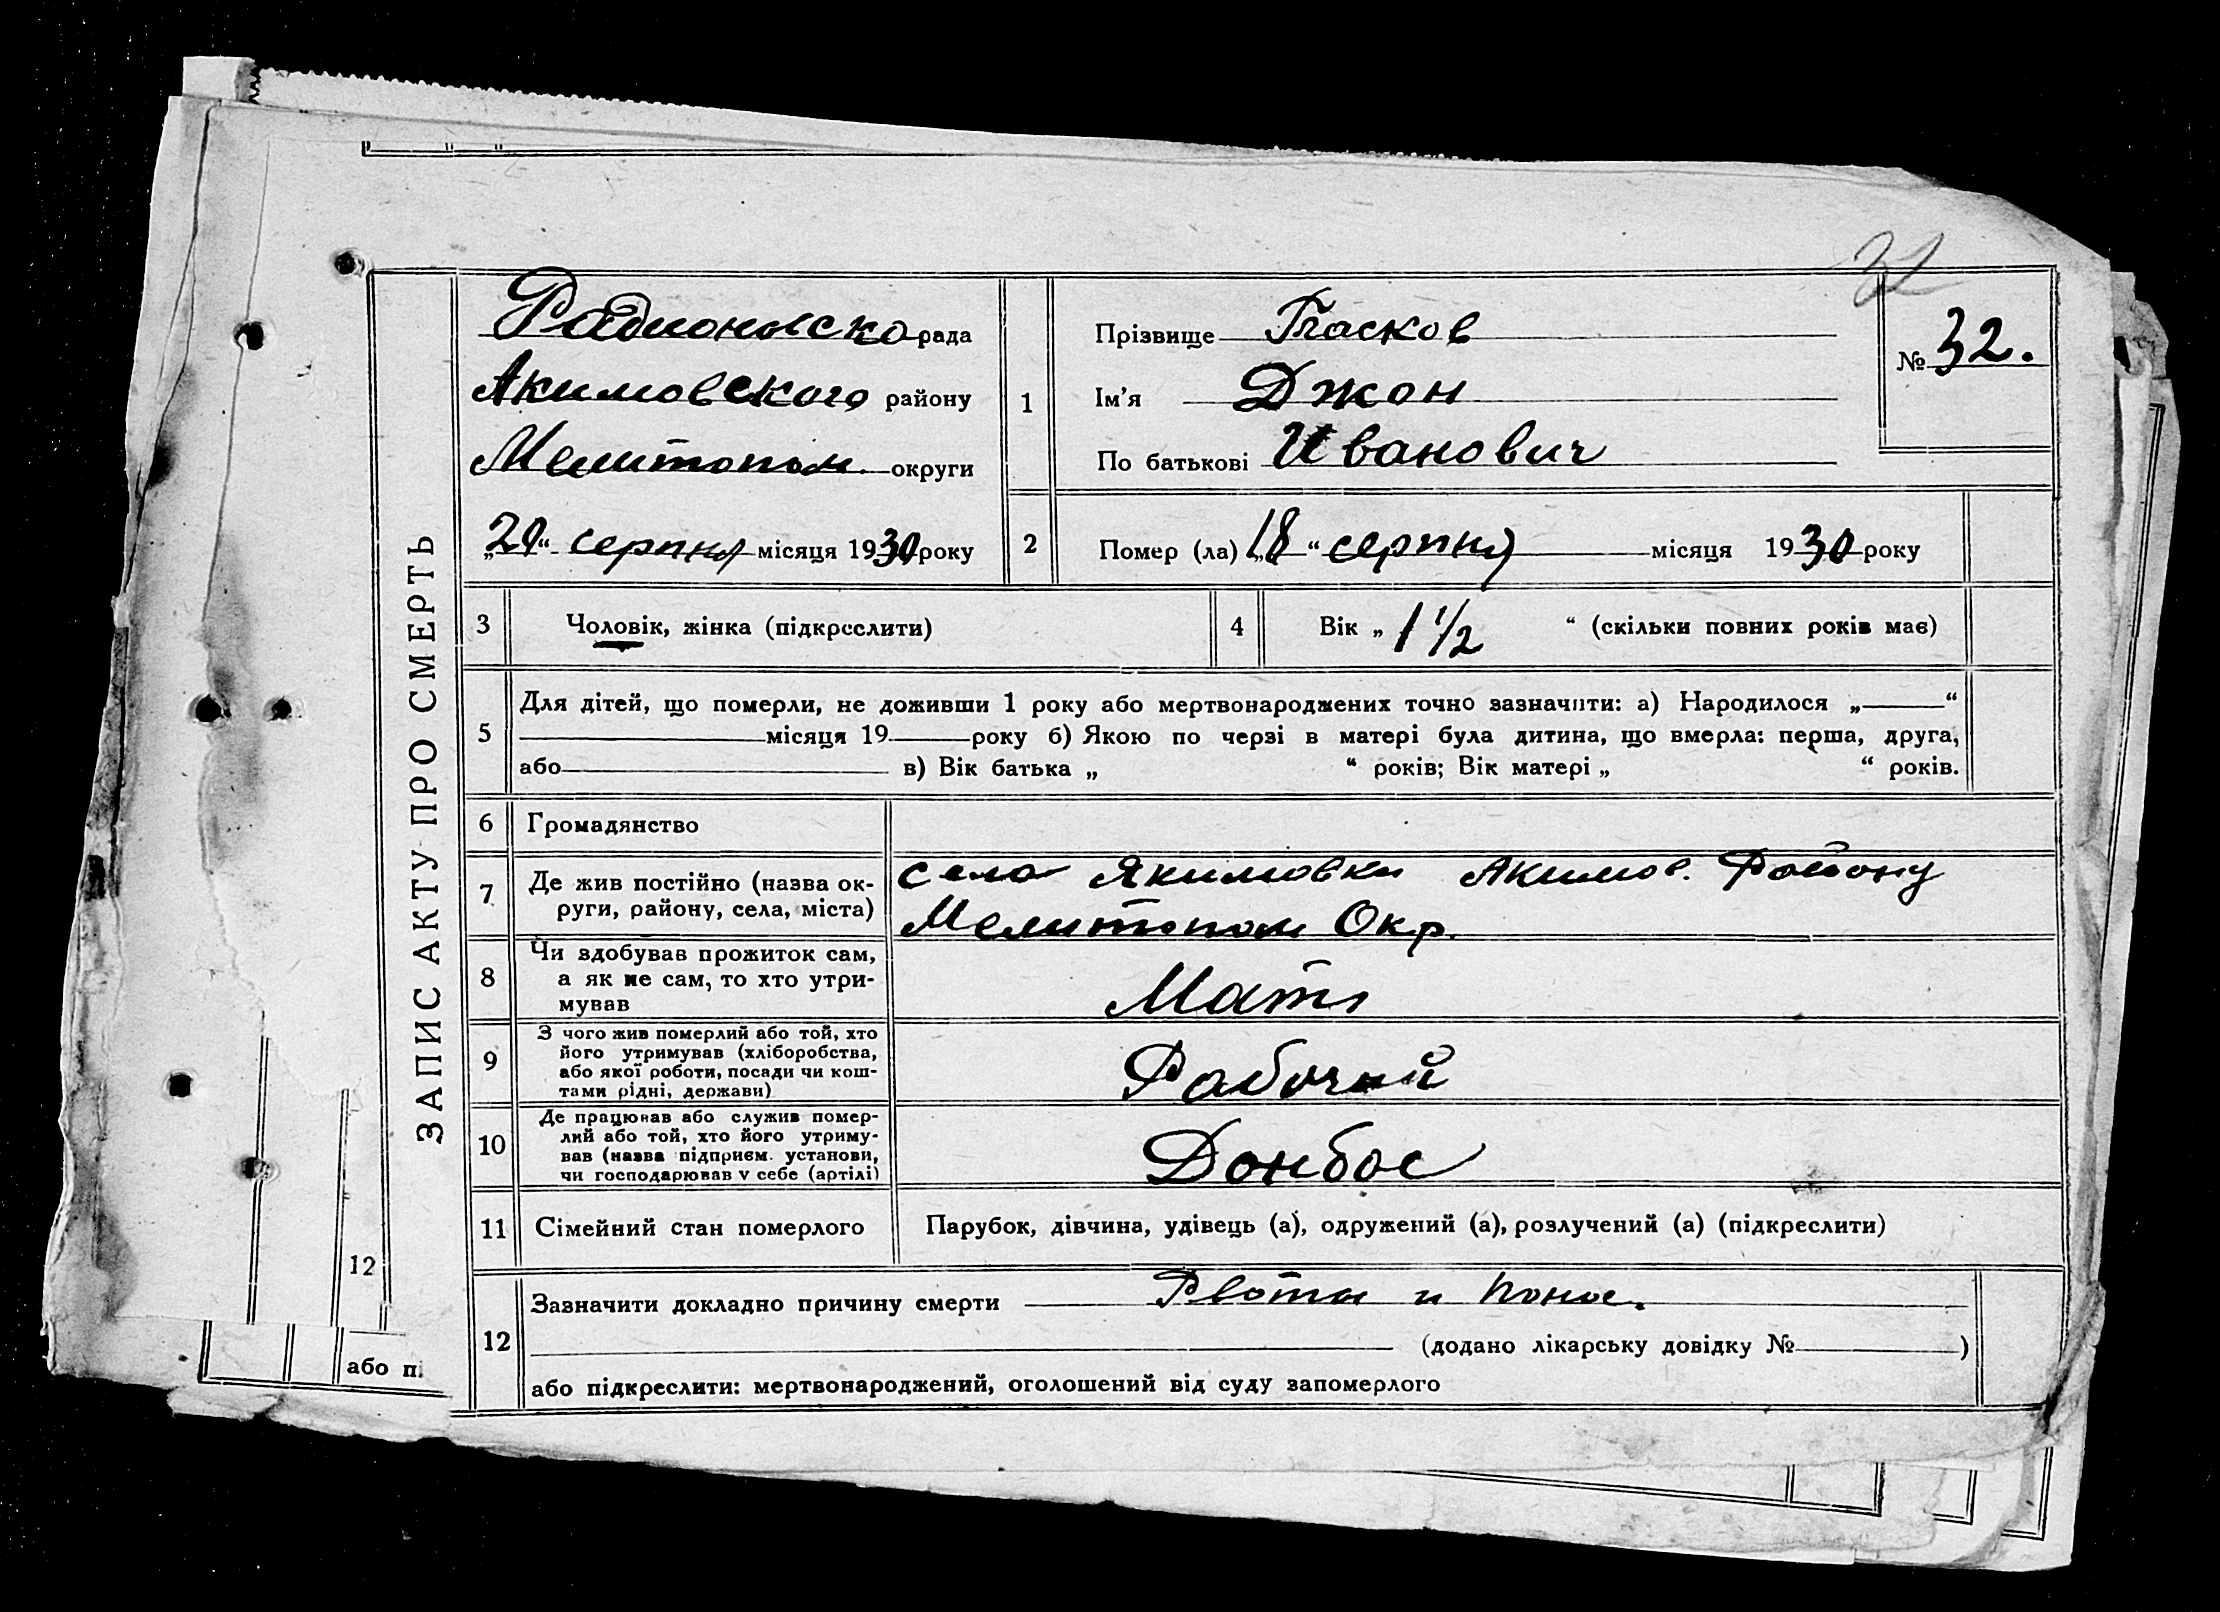 32
ЗАПИС АКТУ ПРО СМЕРТЬ
Радионовско рада
Акимовского району
Мелитопол. округи
„20“ серпня місяця 1930 року
№ 32.
1
Прізвище
Ім'я Джон
По батькові Иванович
2 Помер (ла) „18“ серпня місяця 1930 року
3 Чоловік, жінка (підкреслити)
4 Вік „1 1/2“ (скільки повних років має)
5 Для дітей, що померли, не доживши 1 року або мертвонароджених точно зазначити: а) Народилося „ “
місяця 19 року б) Якою по черзі в матері була дитина, що вмерла: перша, друга,
або в) Вік батька „ “ років; Вік матері „ “ років.
6 Громадянство
7 Де жив постійно (назва ок-
руги, району, села, міста)
село Якимовки Акимов. Району
Мелитопол Окр.
8 Чи здобував прожиток сам,
а як не сам, то хто утри-
мував
Мать
9 З чого жив померлий або той, хто
його утримував (хліборобства,
або якої роботи, посади чи кош-
тами рідні, держави)
Рабочий
10 Де працював або служив помер-
лий або той, хто його утриму-
вав (назва підприєм. установи,
чи господарював у себе (артілі)
Донбас
11 Сімейний стан померлого Парубок, дівчина, удівець (а), одружений (а), розлучений (а) (підкреслити)
12 Зазначити докладно причину смерти Рвота и понос.
(додано лікарську довідку № )
або підкреслити: мертвонароджений, оголошений від суду запомерлого
12
або п